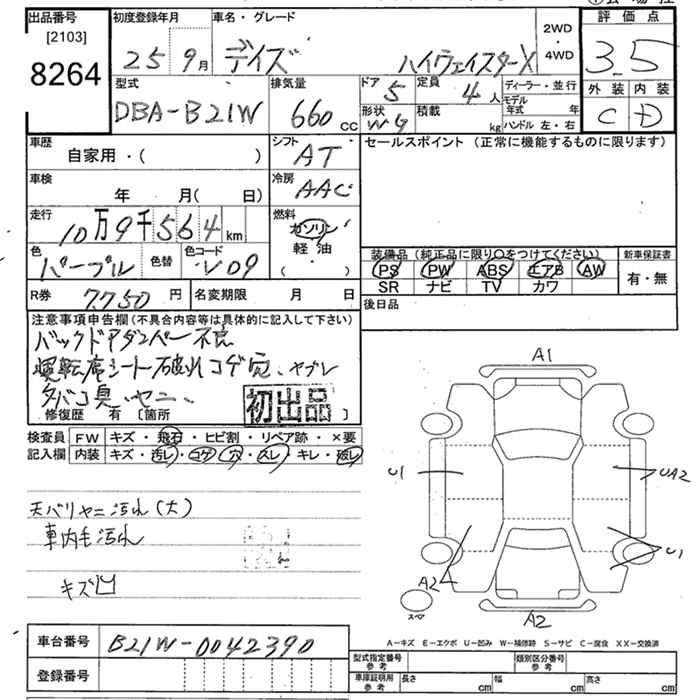 出品番号 [2103] 8264
初度登録年月 25 9月
車名・グレード デイズ ハイウェイスターX
2WD・4WD
評価点 3.5
外装 内装
C D
型式 DBA-B21W
排気量 660 cc
ドア 5 定員 4人
形状 積載 kg
ディーラー・並行
モデル年式 年
ハンドル 左・右
車歴 自家用・( )
シフト AT
セールスポイント (正常に機能するものに限ります)
車検 年 月( 日)
冷房 AAC
走行 10万9千564 km
燃料 ガソリン 軽油 ( ・ )
色 パープル 色替 色コード V09
装備品 (純正品に限り○をつけてください) 新車保証書
PS PW ABS エアB AW 有・無
SR ナビ TV カワ
R券 7750 円 名変期限 月 日
後日品
注意事項申告欄 (不具合内容等は具体的に記入して下さい)
バックドアダンパー不良
運転席シート破れコゲ穴、ヤブレ
タバコ臭、ヤニ、
修復歴 有 〔箇所 〕
初出品
検査員記入欄 FW キズ・飛石・ヒビ割・リペア跡・×要
内装 キズ・汚レ・コゲ・穴・スレ・キレ・破レ
天バリヤニ汚れ(大)
車内毛汚れ
キズ凹
A1
U1 UA2
U1
A2
スペア
A2
A-キズ E-エクボ U-凹み W-補修跡 S-サビ C-腐食 XX-交換済
車台番号 B21W-0042390
登録番号
型式指定番号 参考 類別区分番号 参考
車庫証明用 参考 長さ cm 幅 cm 高さ cm